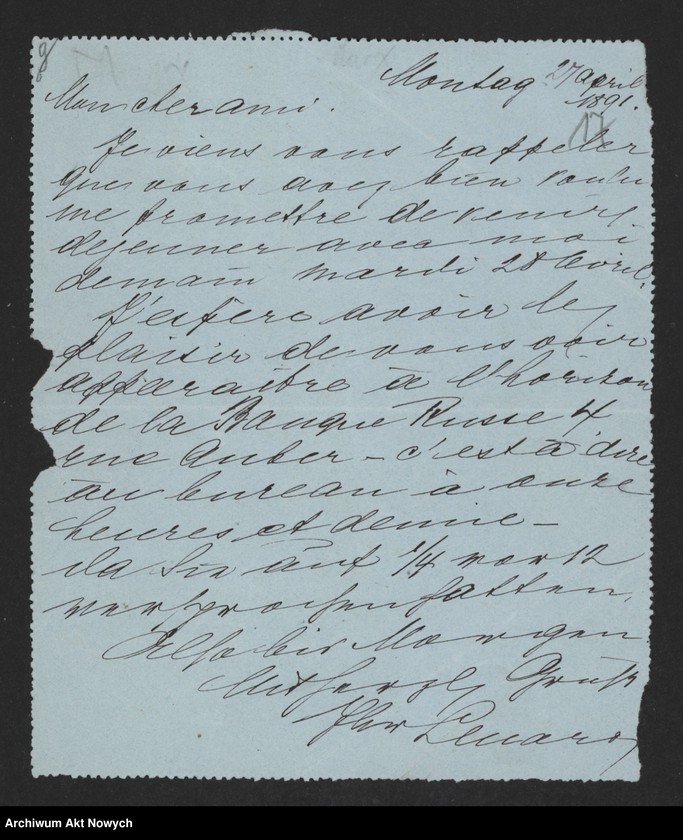 Montag 27 april
1891.
17
Mon cher ami.
Je viens vous rappeler
que vous avez bien voulu
me promettre de venir
dejeuner avec moi
demain mardi 28 avril.
J'espere avoir le
plaisir de vous voir
apparaitre à l'horizon
de la Banque Russe 4
rue Auber – c'est à dire
au bureau à onze
heures et demie –
da Sie auf 1/4 vor 12
versprochen hatten.
Also bis Morgen
Mit herzl Gruß
Ihr
Archiwum Akt Nowych